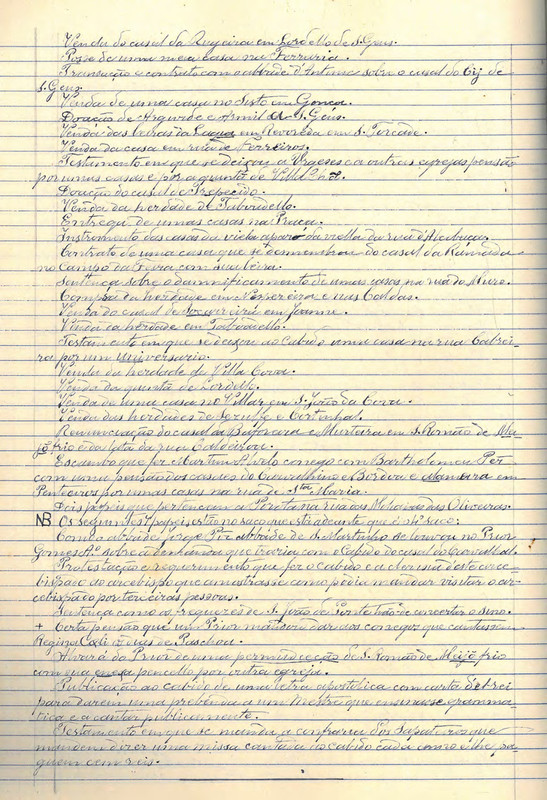 Venda do casal da Rugeira em Lordello de S. Gens.
Posse de uma meia casa na Ferraria.
Transacção e contrato com o abbade d'Antime sobre o casal do Cij de
S. Gens.
Venda de uma casa no Sisto em Gonça.
Doação de Argonde e Armil de S. Gens.
Venda das leiras da Lagea em Revoreda em S. Torcade.
Venda da casa em rua de Forreiros.
Testamento em que se deixou as Vrgeses e a outras egrejas pensão
por umas casas e por a quinta de Villa
Doação do casal de Trepecido.
Venda da herdade de Taboadello.
Entrega de umas casas na Praça.
Instromento das casas da vida a par da viella da rua d'Alcobaça.
Contrato de uma casa que se desmembrou do casal da Ramada
no Campo da Feira com sua leira.
Sentença sobre o damnificamento de umas casas na rua do Muro.
Compra da herdade em Nespereira e nas Caldas.
Venda do casal de em Joanne.
Venda da herdade em Taboadello.
Testamento em que se deixou ao Cabido uma casa na rua Çabrei-
ra por um Universario.
Venda da herdade de Villa Cova.
Venda da quinta de Lordello.
Venda de uma casa no Villar em S. João da Cova.
Venda das herdades de Seruffe e Certinhal.
Renunciação do casal da e Murteira em S. Romão de Me-
jõfrio e da rua Caldeiroa.
Escambo que fez Martim Alvelo conego com Bartholomeu Per.
com uma pensão dos casaes do Carvalhinho e Bodeva e Maneira em
Penteeiros por umas casas na rua de Sta Maria.
Dois papeis que pertencem a Prata na rua dos Mercadores das Oliveiras.
NB Os seguintes 7 papeis estão no saco que está adeante que é 4º saco:
Com o abbade Jorge Per. abbade de S. Martinho de com o Prior
Gomes Aº sobre a demanda que traria com o Cabido do casal do Carvalhal.
Protestação e requerimento que fez o cabido e a cleresia deste arce-
bispado ao arcebispo que amostrasse como podia mandar visitar o ar-
cebispado por terceiras pessoas.
Sentença como os freguezes de S. João de Ponte hão de concertar o sino.
+ Certa pensão que um Prior mandou dar aos conegos que cantassem
Regina Cœli o dia de Paschoa.
Alvará do Prior de uma permudação de S. Romão de Mejõfrio
com que por outra egreja.
Publicação ao cabido de uma letra apostolica com carta del rei
para darem uma prebenda a um Mestre que ensinasse gramma-
tica e a cantar publicamente.
Testamento em que se manda a confraria dos Sapateiros que
mandem dizer uma missa cantada ao cabido cada anno e lhe pa-
guem cem reis.